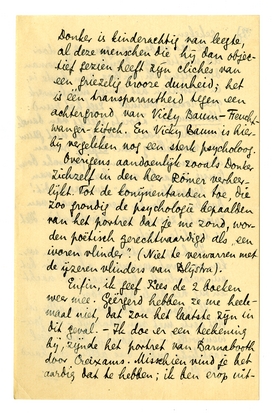 Donker is kinderachtig van leegte,
al deze menschen die hij dan objec-
tief gezien heeft zijn cliché's van
een "griezelig brooze dunheid; het
is een transparantheid tegen een
achtergrond van Vicky Baum - Feucht-
wanger-kitsch. En Vicky Baum is hier-
bij vergeleken nog een sterke psycholoog.
Overigens aandoenlijk zooals Donker
zichzelf in den heer Römer verheer-
lijkt. Tot de konijnentanden toe, die
zoo grondig de psychologie bepaalden
van het portret dat je me zond, wor-
den poëtisch gerechtvaardigd als "een
ivoren vlinder"! (Niet te verwarren met
de ijzeren vlinders van Blijstra).
Enfin, ik geef Kees de 2 boeken
weer mee. Geërgerd hebben ze me heele-
maal niet, dat zou het laatste zijn in
dit geval. - Ik doe er een teekening
bij, zijnde het portret van Barnabooth
door Creixams. Misschien vind je het
aardig dat te hebben; ik ben erop uit-